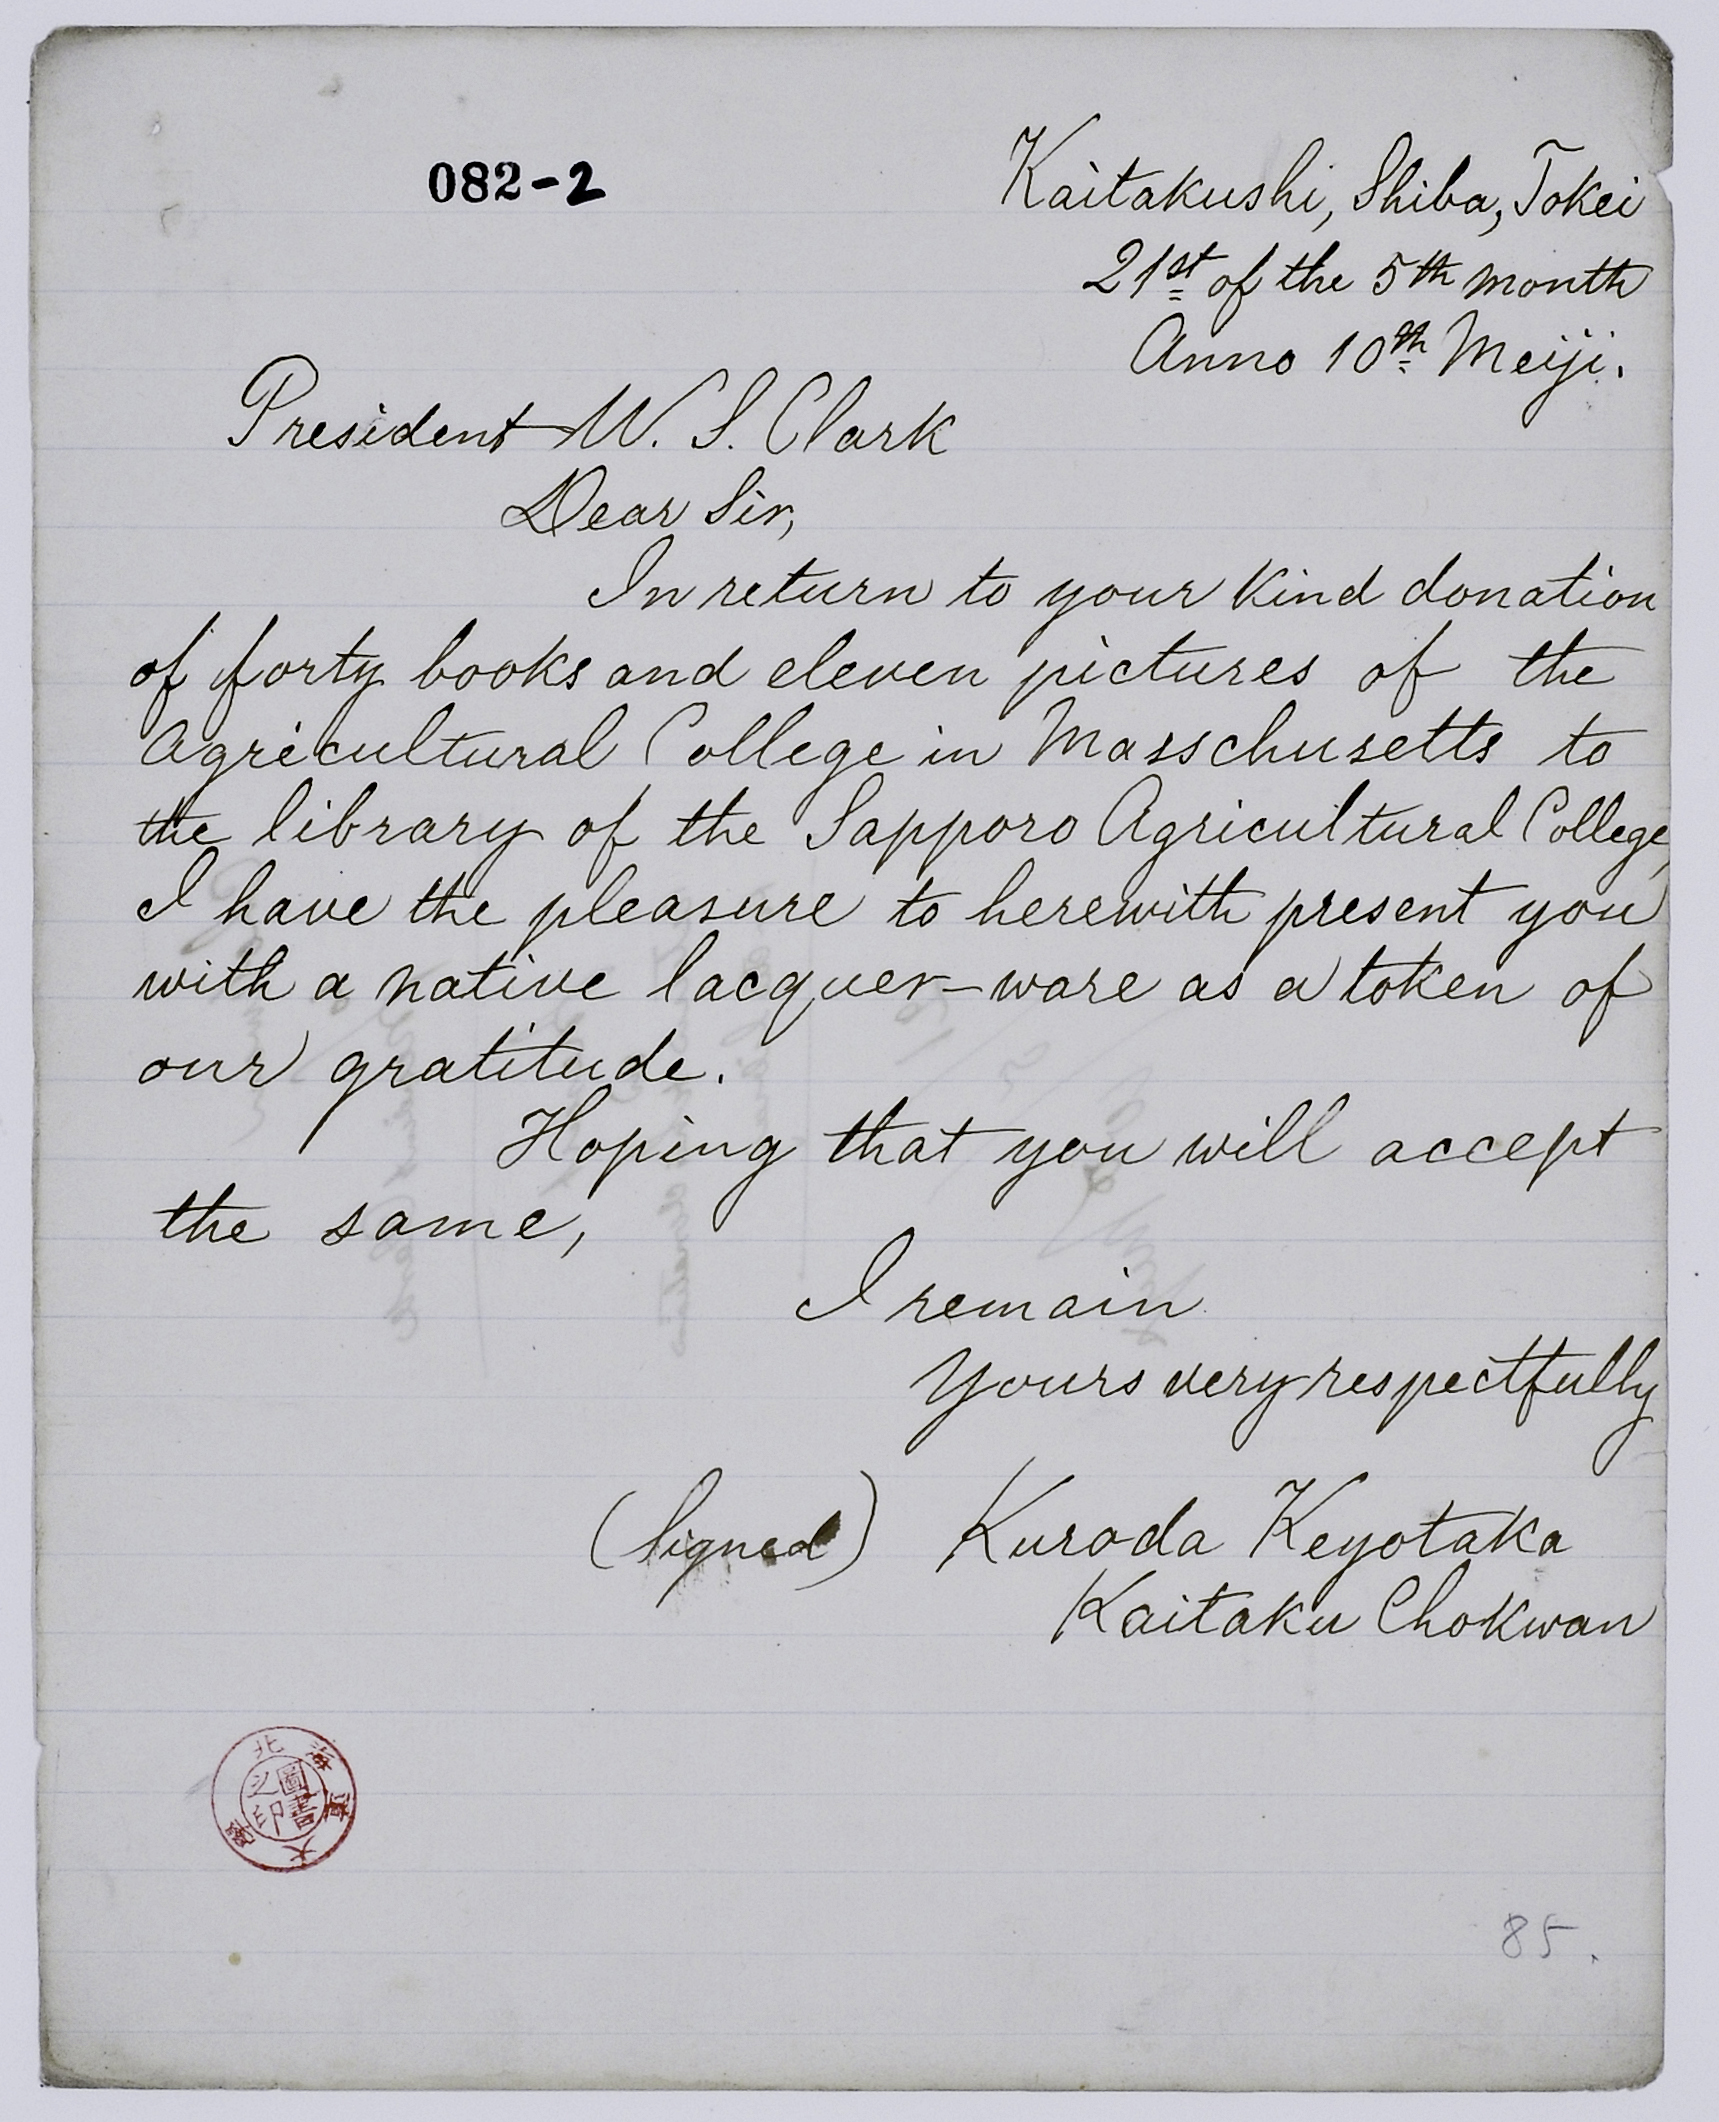 082-2
Kaitakushi, Shiba, Tokei
21st of the 5th month
Anno 10th Meiji.
President W. S. Clark
Dear Sir,
In return to your kind donation
of forty books and eleven pictures of the
Agricultural College in Masschusetts to
the library of the Sapporo Agricultural College,
I have the pleasure to herewith present you
with a native lacquer-ware as a token of
our gratitude.
Hoping that you will accept
the same,
I remain
Yours very respectfully
(Signed) Kuroda Keyotaka
Kaitaku Chokwan
北海道大學
圖書
之印
85.